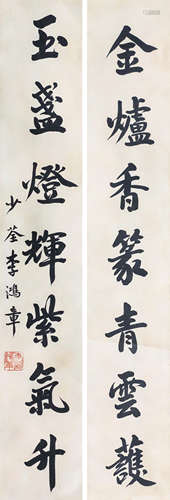 金爐香篆青雲護
玉盞燈輝紫氣升
少荃李鴻章